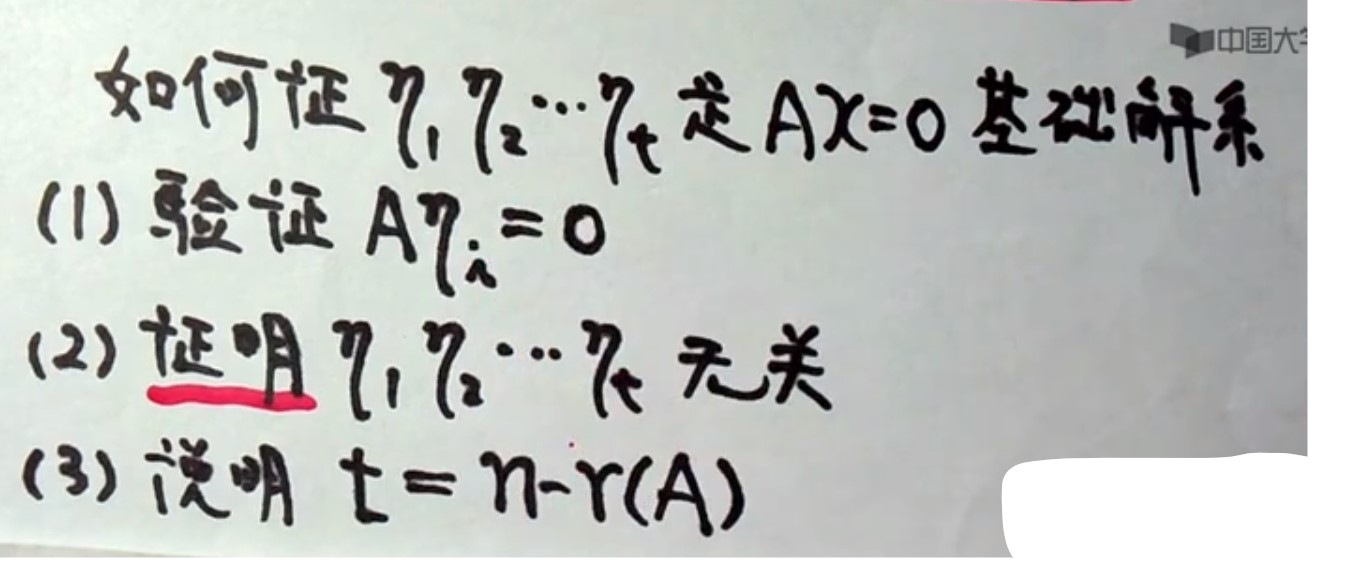 中国大
如何证 η₁ η₂ … ηₜ 是 AX=0 基础解系
(1) 验证 Aηᵢ = 0
(2) 证明 η₁ η₂ … ηₜ 无关
(3) 说明 t = n-r(A)